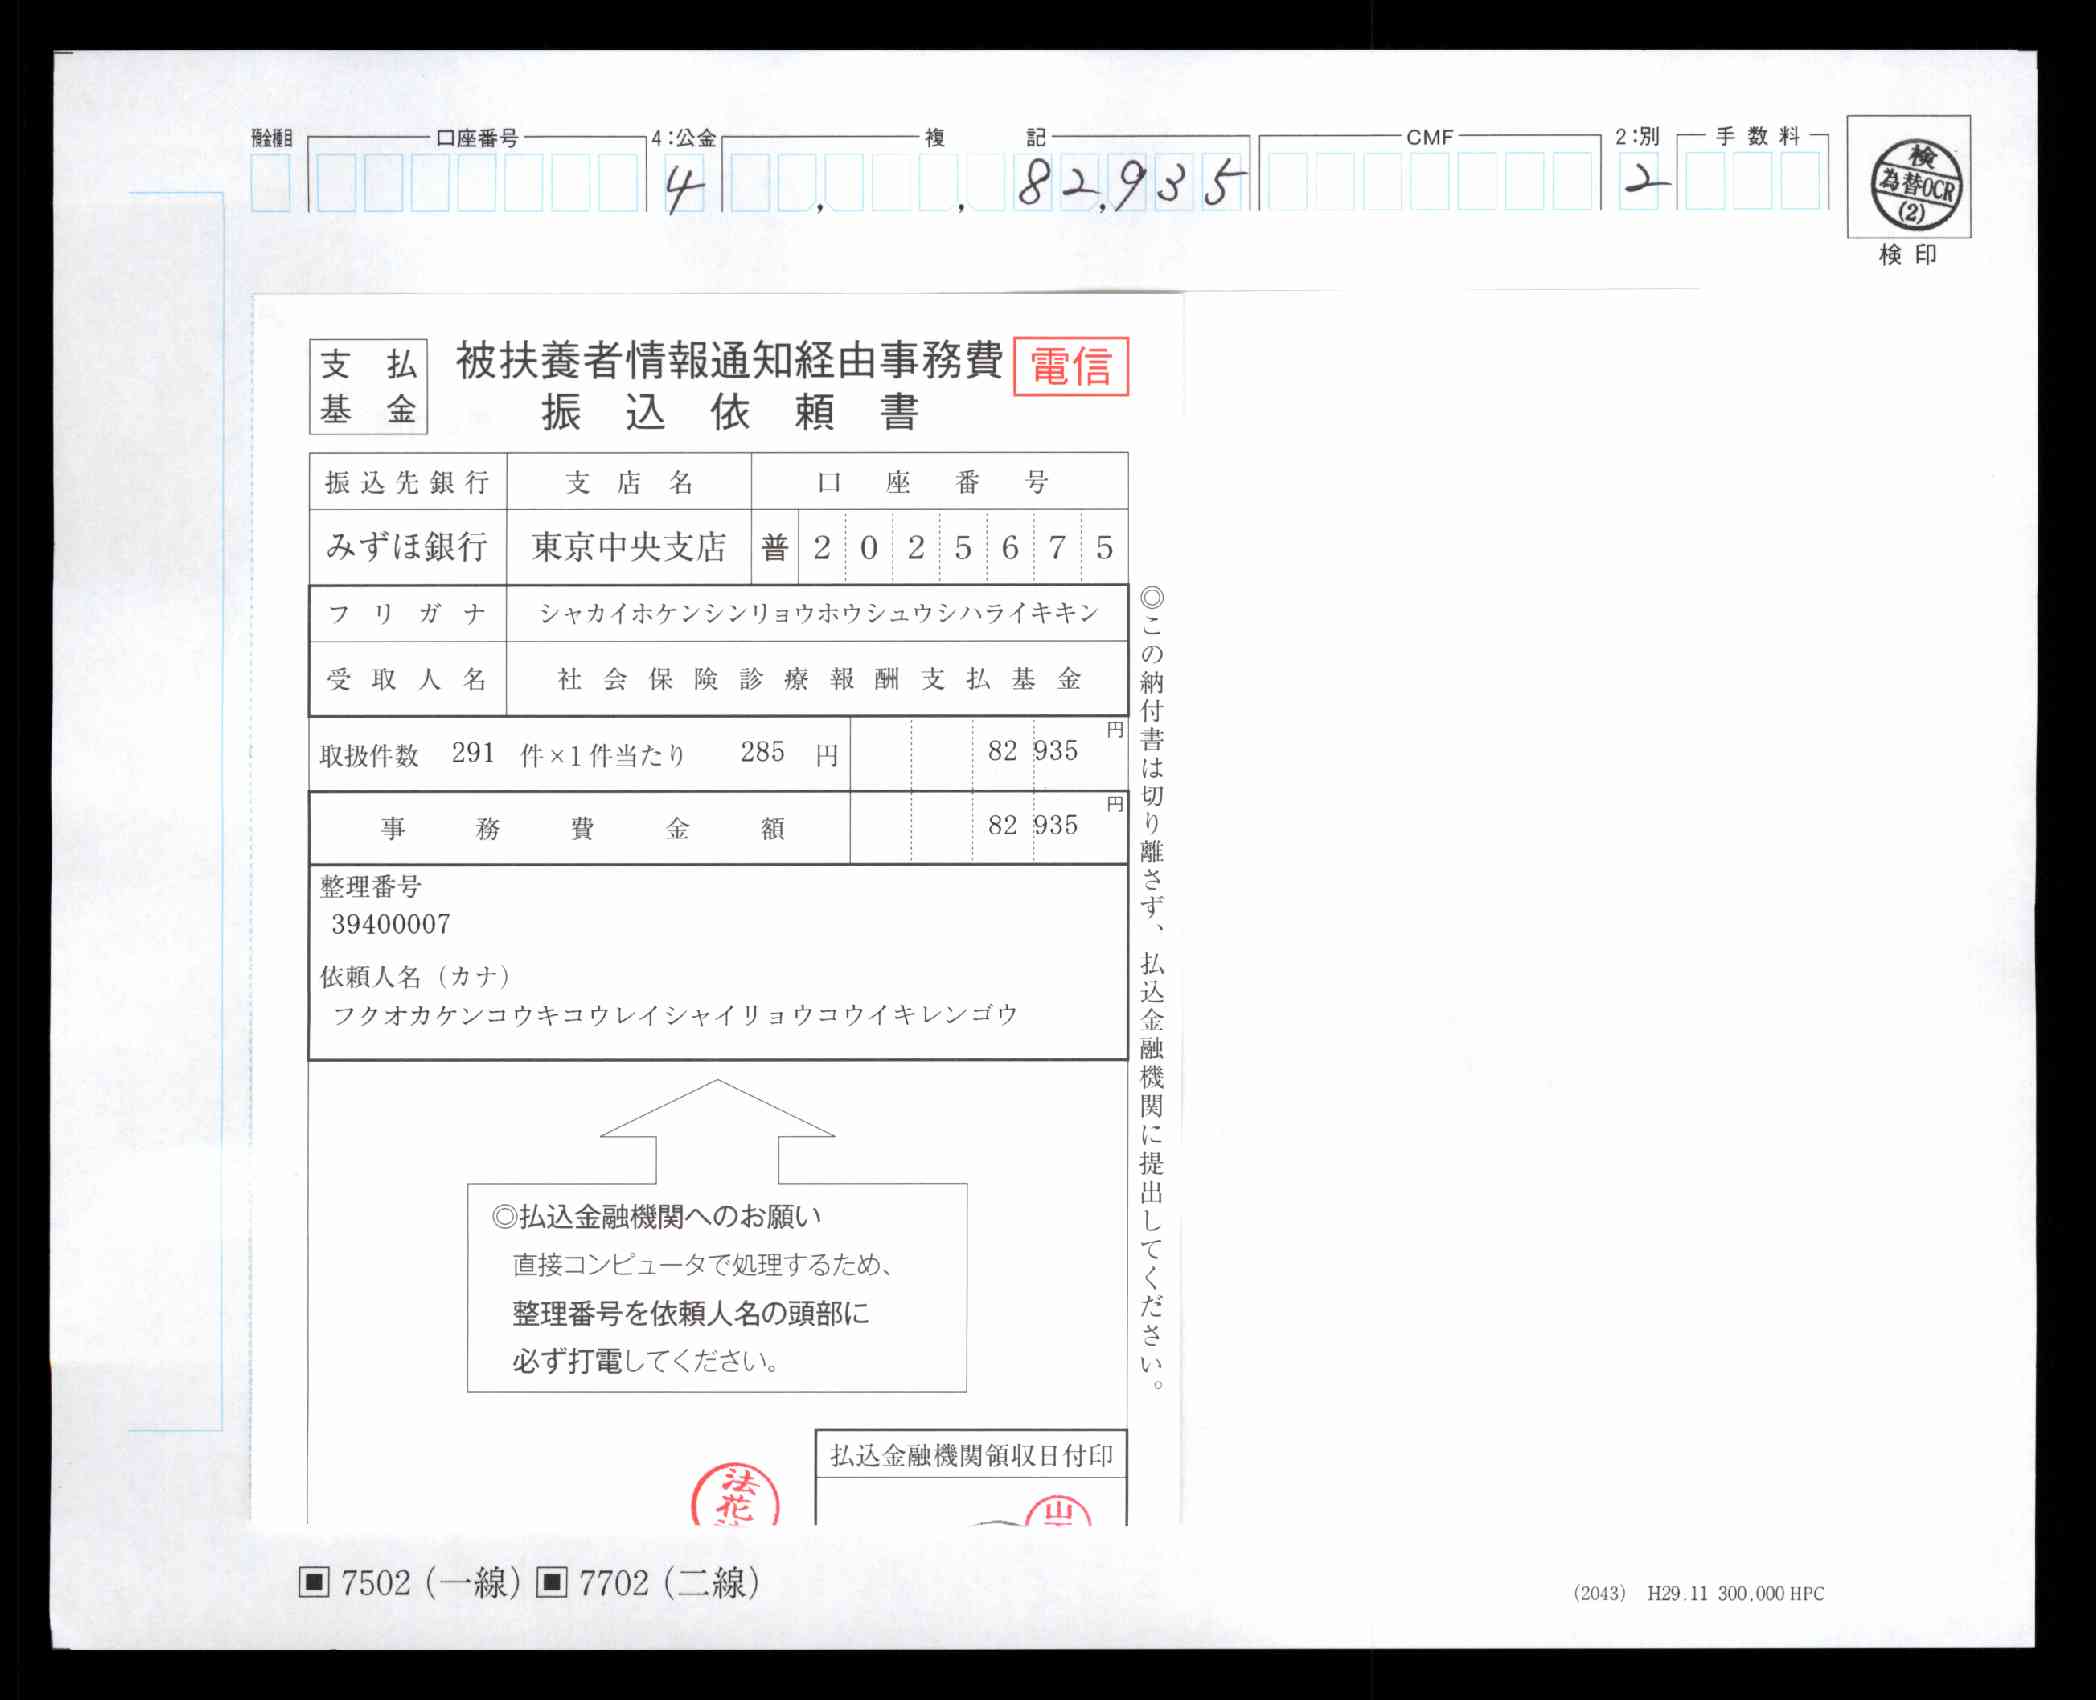 預金種目 口座番号 4:公金 複 記 CMF 2:別 手数料
4 82,935 2
検
為替OCR
(2)
検印
支払
基金
被扶養者情報通知経由事務費
振込依頼書
電信
振込先銀行 支店名 口座番号
みずほ銀行 東京中央支店 普 2 0 2 5 6 7 5
フリガナ シャカイホケンシンリョウホウシュウシハライキキン
受取人名 社会保険診療報酬支払基金
取扱件数 291 件×1件当たり 285 円 82 935 円
事務費金額 82 935 円
整理番号
39400007
依頼人名(カナ)
フクオカケンコウキコウレイシャイリョウコウイキレンゴウ
◎この納付書は切り離さず、払込金融機関に提出してください。
◎払込金融機関へのお願い
直接コンピュータで処理するため、
整理番号を依頼人名の頭部に
必ず打電してください。
払込金融機関領収日付印
法花
山
▣7502(一線)▣7702(二線)
(2043) H29.11 300,000 HPC